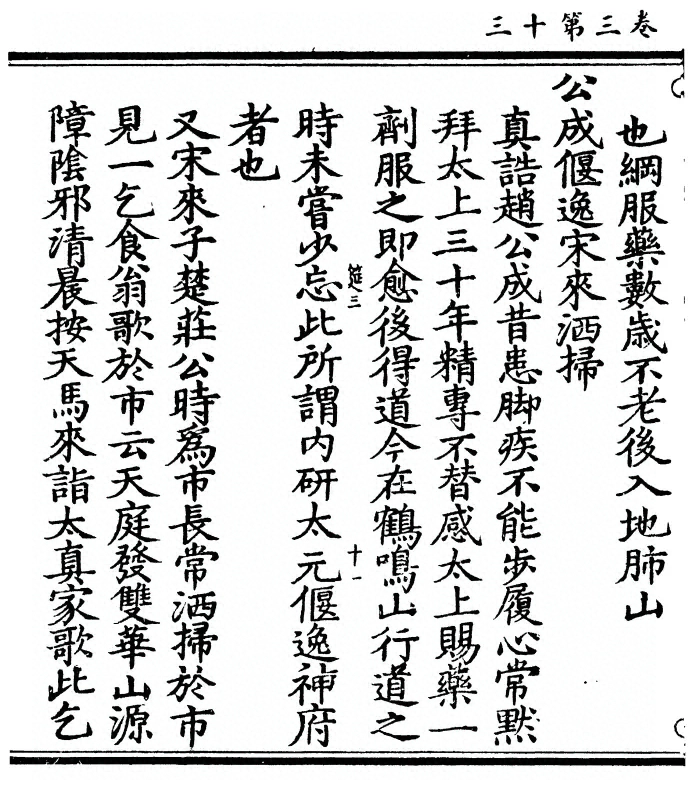 三十第三卷
也綱服藥數歳不老後入地肺山
公成偃逸宋來洒掃
真誥趙公成昔患脚疾不能步履心常黙
拜太上三十年精專不替感太上賜藥一
劑服之即愈後得道今在鶴鳴山行道之
時未嘗少忘此所謂内研太元偃逸神府
筵三
十一
者也
又宋來子楚莊公時為市長常洒掃於市
見一乞食翁歌於市云天庭發雙華山源
障陰邪清晨按天馬來詣太真家歌此乞